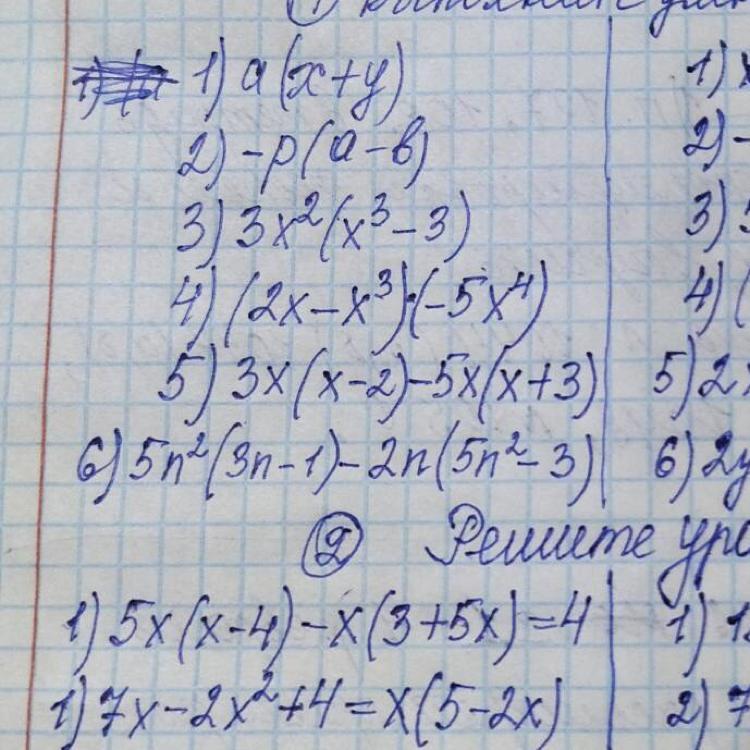 ① Выполните умн
1) a(x+y)
2) -p(a-b)
3) 3x²(x³-3)
4) (2x-x³)·(-5x⁴)
5) 3x(x-2)-5x(x+3)
6) 5n²(3n-1)-2n(5n²-3)
1)
2) -
3) 5
4) (
5) 2
6) 2y
② Решите ура
1) 5x(x-4)-x(3+5x)=4
1) 7x-2x²+4=x(5-2x)
1) 1
2) 7